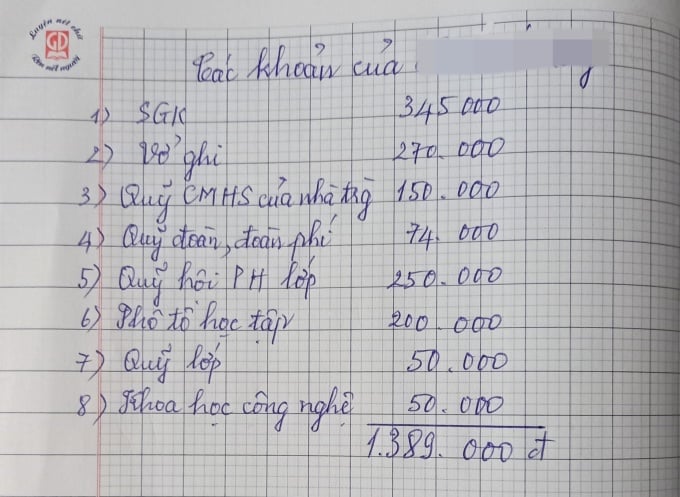 Luyện nét chữ
GD
Rèn nết người
Các khoản của
1) SGK 345 000
2) Vở ghi 270.000
3) Quỹ CMHS của nhà trg 150.000
4) Quỹ đoàn, đoàn phí 74.000
5) Quỹ hội PH lớp 250.000
6) Phô tô học tập 200.000
7) Quỹ lớp 50.000
8) Khoa học công nghệ 50.000
1.389.000 đ